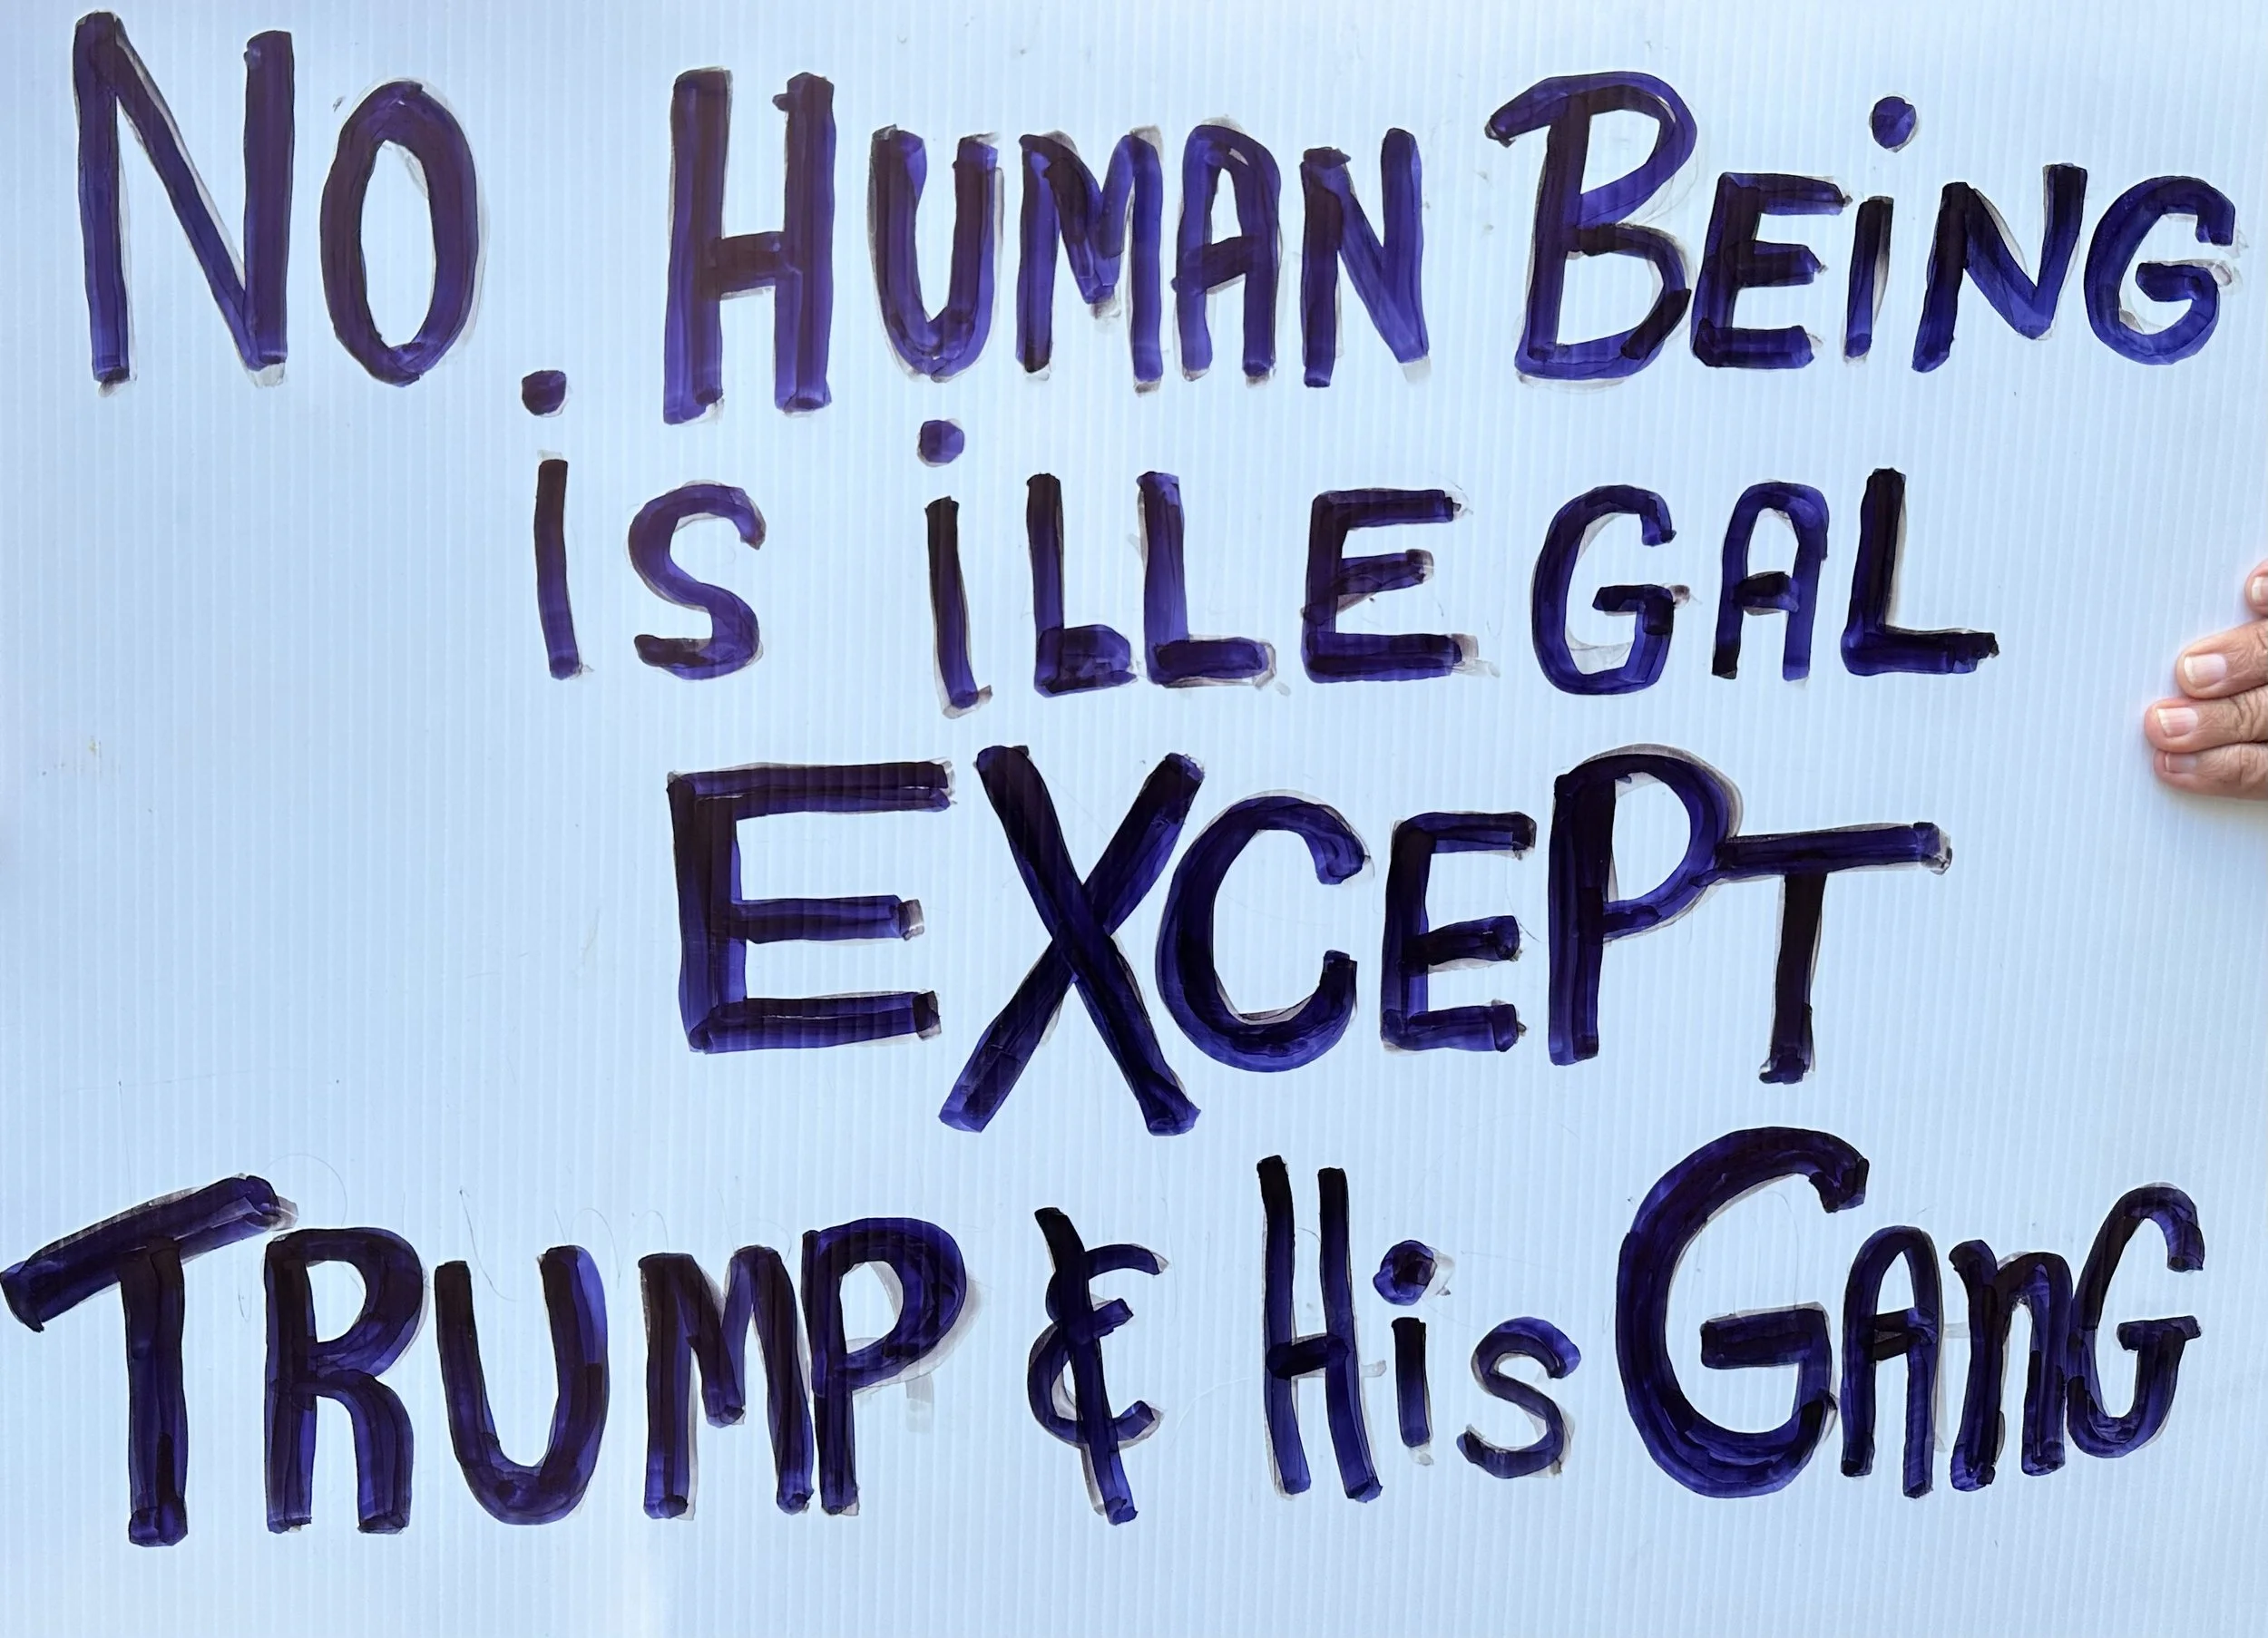 No HUMAN BEiNG
iS iLLEGAL
EXCEPT
TRUMP & His GANG